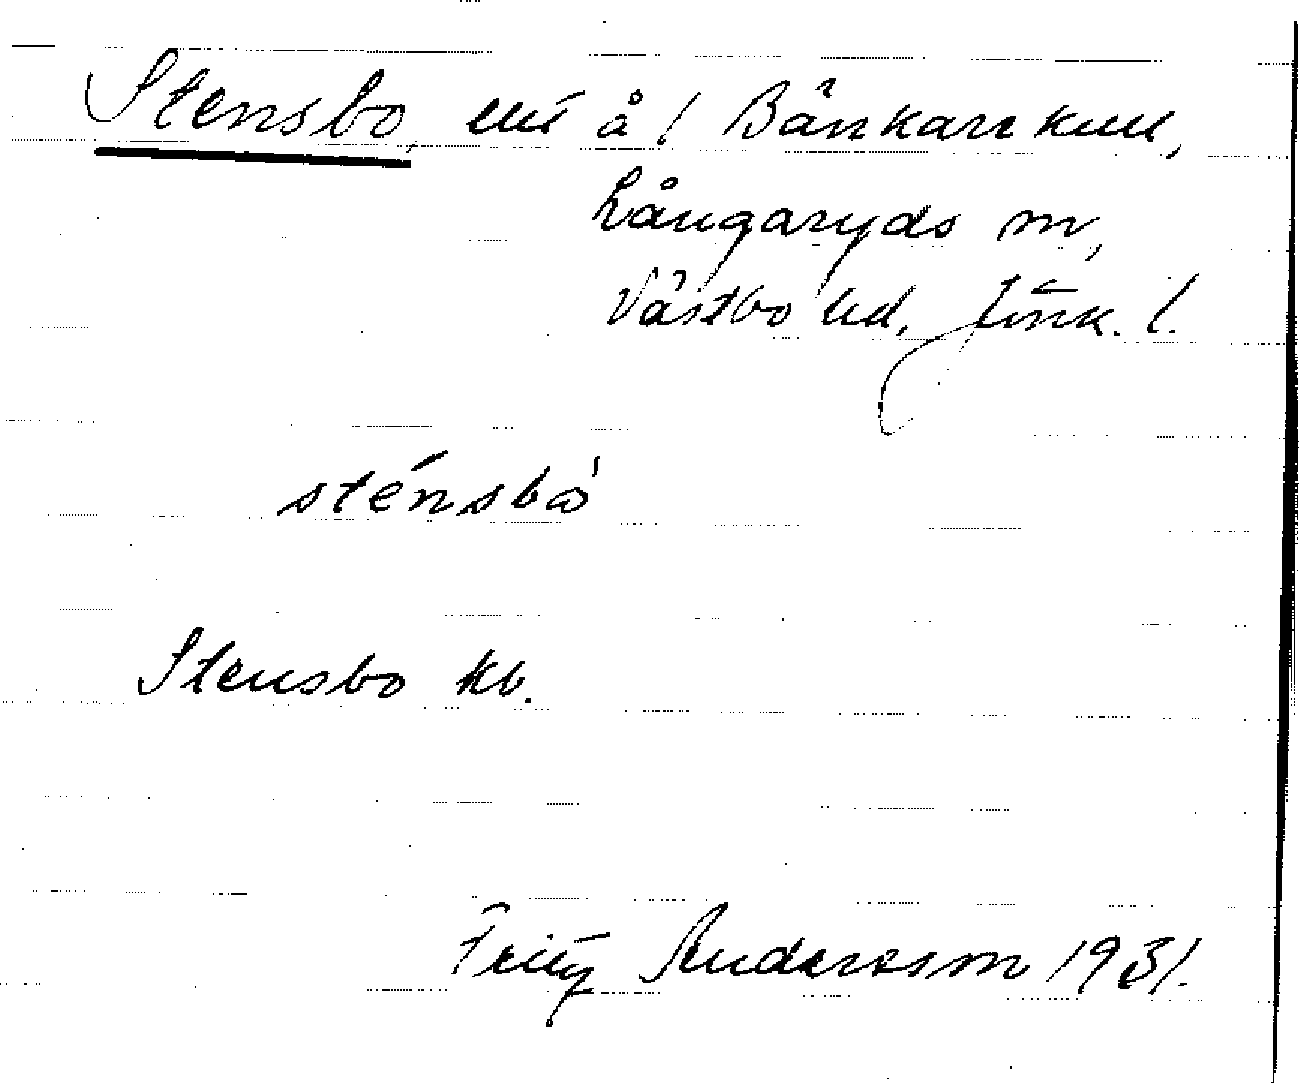 Stensbo, lht å ! Bänkarekull,
Långaryds sn,
Västbo hd, Jönk. l.
sténsbò
Stensbo kb.
Fritz Andersson 1931.